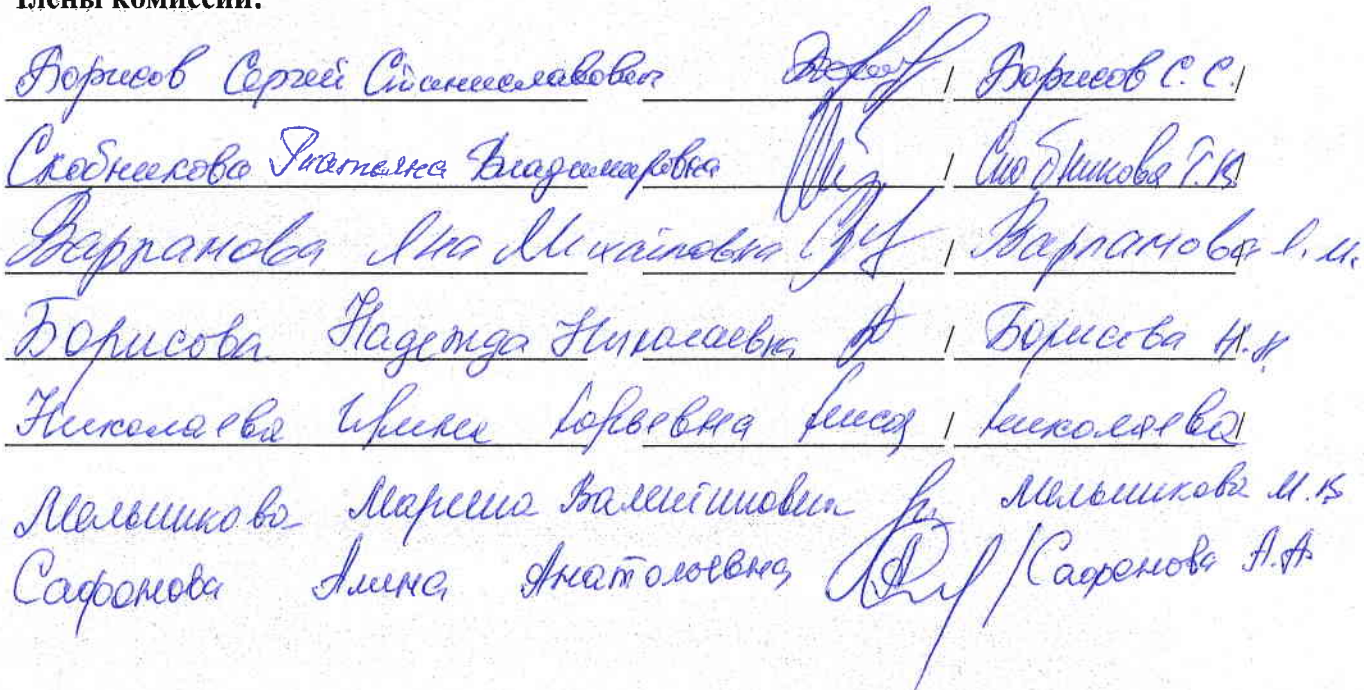 Члены комиссии:
Борисов Сергей Станиславович / Борисов С. С. /
Скобникова Татьяна Владимировна / Скобникова Т. В. /
Варламова Яна Михайловна / Варламова Я. М.
Борисова Надежда Николаевна / Борисова Н. Н.
Николаева Ирина Юрьевна / Николаева /
Мельникова Марина Валентиновна Мельникова М. В
Сафонова Алина Анатольевна / Сафонова А. А.